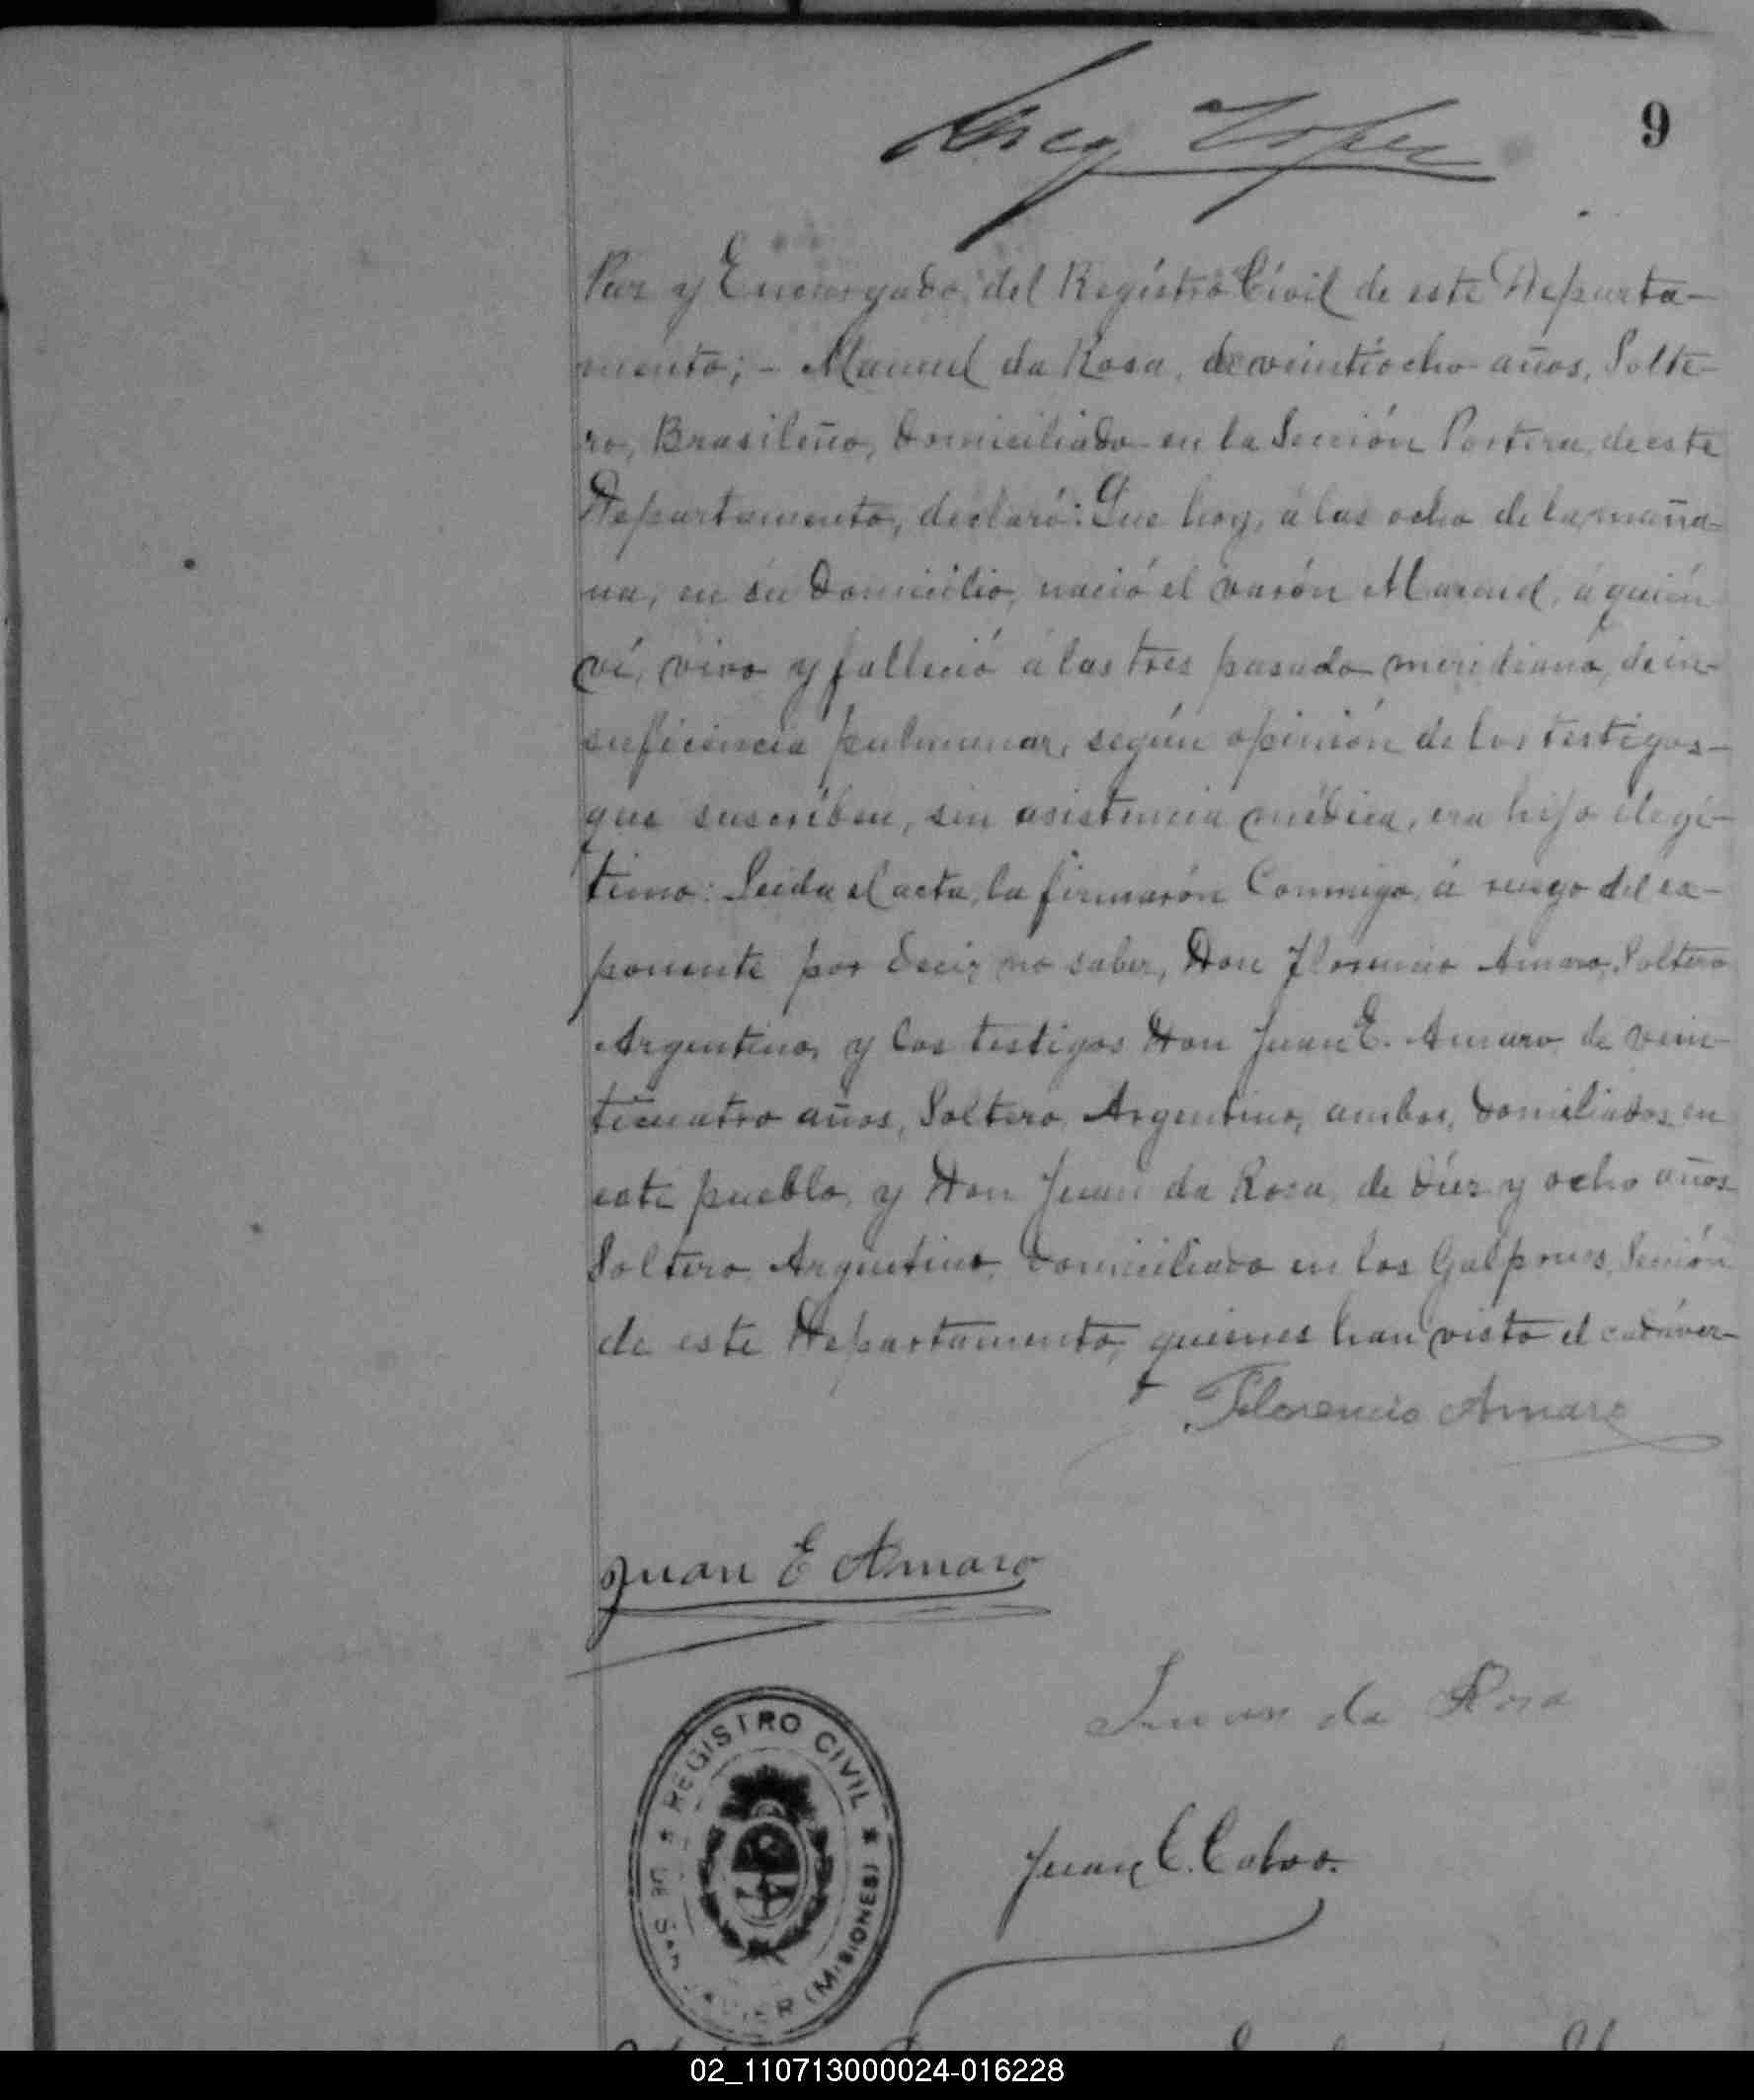 Lopez
9
Paz y Encargado, del Registro Civil de este Departa-
mento; - Manuel da Rosa, de veintiocho años, Solte-
ro, Brasileño, domiciliado en la Sección Portera, de este
Departamento, declaró: Que hoy, á las ocho de la maña-
na, en su domicilio, nació el varón Manuel, á quién
ví, vivo y falleció á las tres pasado meridiano, de in-
suficiencia pulmunar, según opinión de los testigos-
que suscriben, sin asistencia médica, era hijo ilegí-
timo: Leida el acta, la firmarón Conmigo, á ruego del ex-
ponente por decir no saber, Don Florencio Amaro, Soltero
Argentino, y los testigos Don Juan E. Amaro, de vein-
ticuatro años, Soltero, Argentino, ambos, domiliados en
este pueblo, y Don Juan da Rosa, de diez y ocho años
Soltero, Argentino, domiciliado en los Galpones, Sección
de este Departamento, quienes han visto el cadáver-
Florencio Amaro
Juan E Amaro
Juan da Rosa
REGISTRO CIVIL
DE SAN JAVIER (MISIONES)
Juan C. Calvo.
02_110713000024-016228